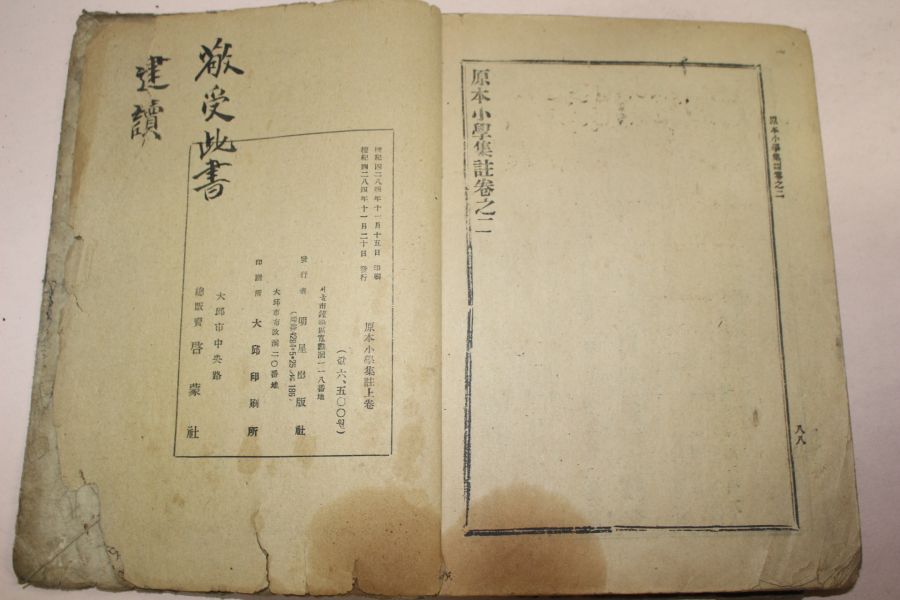 原本小學集註卷之二
原本小學集註卷之二
八八
敬受此書
建讀
檀紀四二八四年十一月十五日 印刷
檀紀四二八四年十一月二十日 發行
原本小學集註上卷
(값 六、五〇〇원)
發行者 明星出版社
大邱市 二〇番地
印刷所 大邱印刷所
大邱市中央路
總販賣 啓蒙社